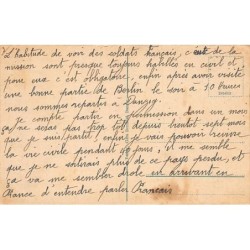 d'habitude de voir des soldats français, c de la
mission sont presque toujours habillés en civil et
pour eux c'est obligatoire, enfin après avoir visité
une bonne partie de Berlin le soir à 10 heures
nous sommes repartis à Danzig.
Je compte partir en permission dans un mois
ça ne seras pas trop tôt depuis bientot sept mois
que je suis parti, enfin je vais pouvoir revivre
la vie civile pendant jours, et il me semble
que je ne sortirais plus de ce pays perdu, et
ça va me sembler drole en arrivant en
France d'entendre parler Français